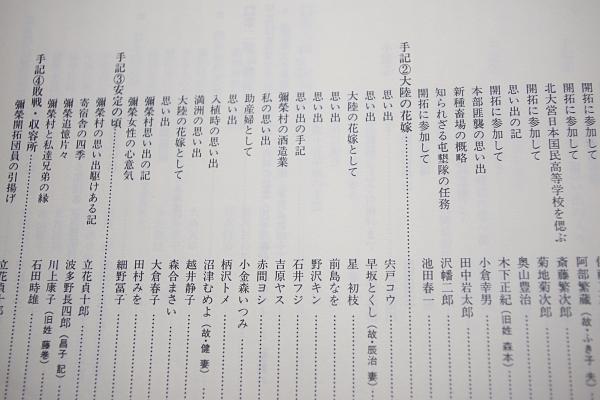 開拓に参加して
開拓に参加して 阿部繁藏（故・ふき子 夫）
北大営日本国民高等学校を偲ぶ 斎藤繁次郎
開拓に参加して 菊地菊次郎
思い出の記 奥山豊治
開拓に参加して 木下正紀（旧姓 森本）
本部匪襲の思い出 小倉幸男
新種畜場の概略 田中岩太郎
知られざる屯墾隊の任務 沢幡二郎
開拓に参加して 池田春一
手記②大陸の花嫁
思い出 宍戸コウ
思い出 早坂とくし（故・辰治 妻）
大陸の花嫁として 星 初枝
思い出 前島なを
思い出 野沢キン
思い出の手記 石井フジ
彌榮村の酒造業 吉原ヤス
私の思い出 赤間ヨシ
助産婦として 小金森いつみ
思い出 柄沢トメ
入植時の思い出 沼津むめよ（故・健 妻）
満洲の思い出 越井静子
大陸の花嫁として 森合まさい
思い出 大倉春子
彌榮村思い出の記 田村みを
彌榮女性の心意気 細野冨子
手記③安定の頃
彌榮村の思い出駆けある記 立花貞十郎
寄宿舎の四季 波多野長四郎（昌子 記）
彌榮追憶片々 川上康子（旧姓 藤巻）
彌榮村と私達兄弟の縁 石田時雄
手記④敗戦・収容所
彌榮開拓団員の引揚げ 立花貞十郎